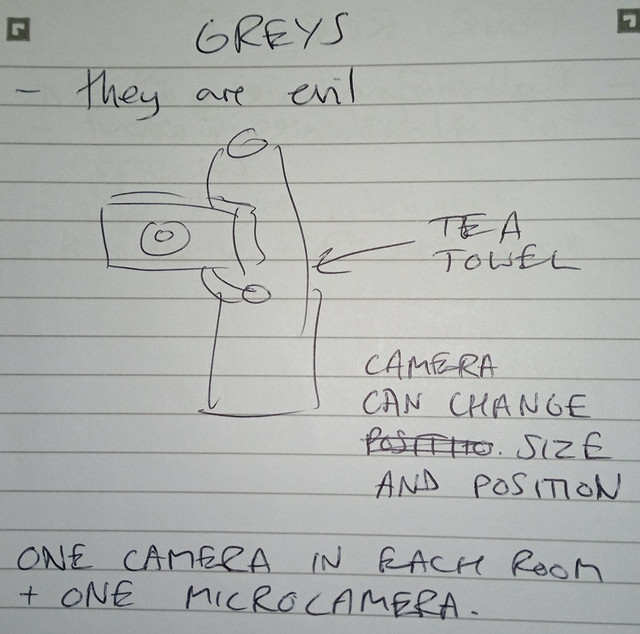 GREYS
- they are evil
TEA
TOWEL
CAMERA
CAN CHANGE
SIZE
AND POSITION
ONE CAMERA IN EACH ROOM
+ ONE MICROCAMERA.